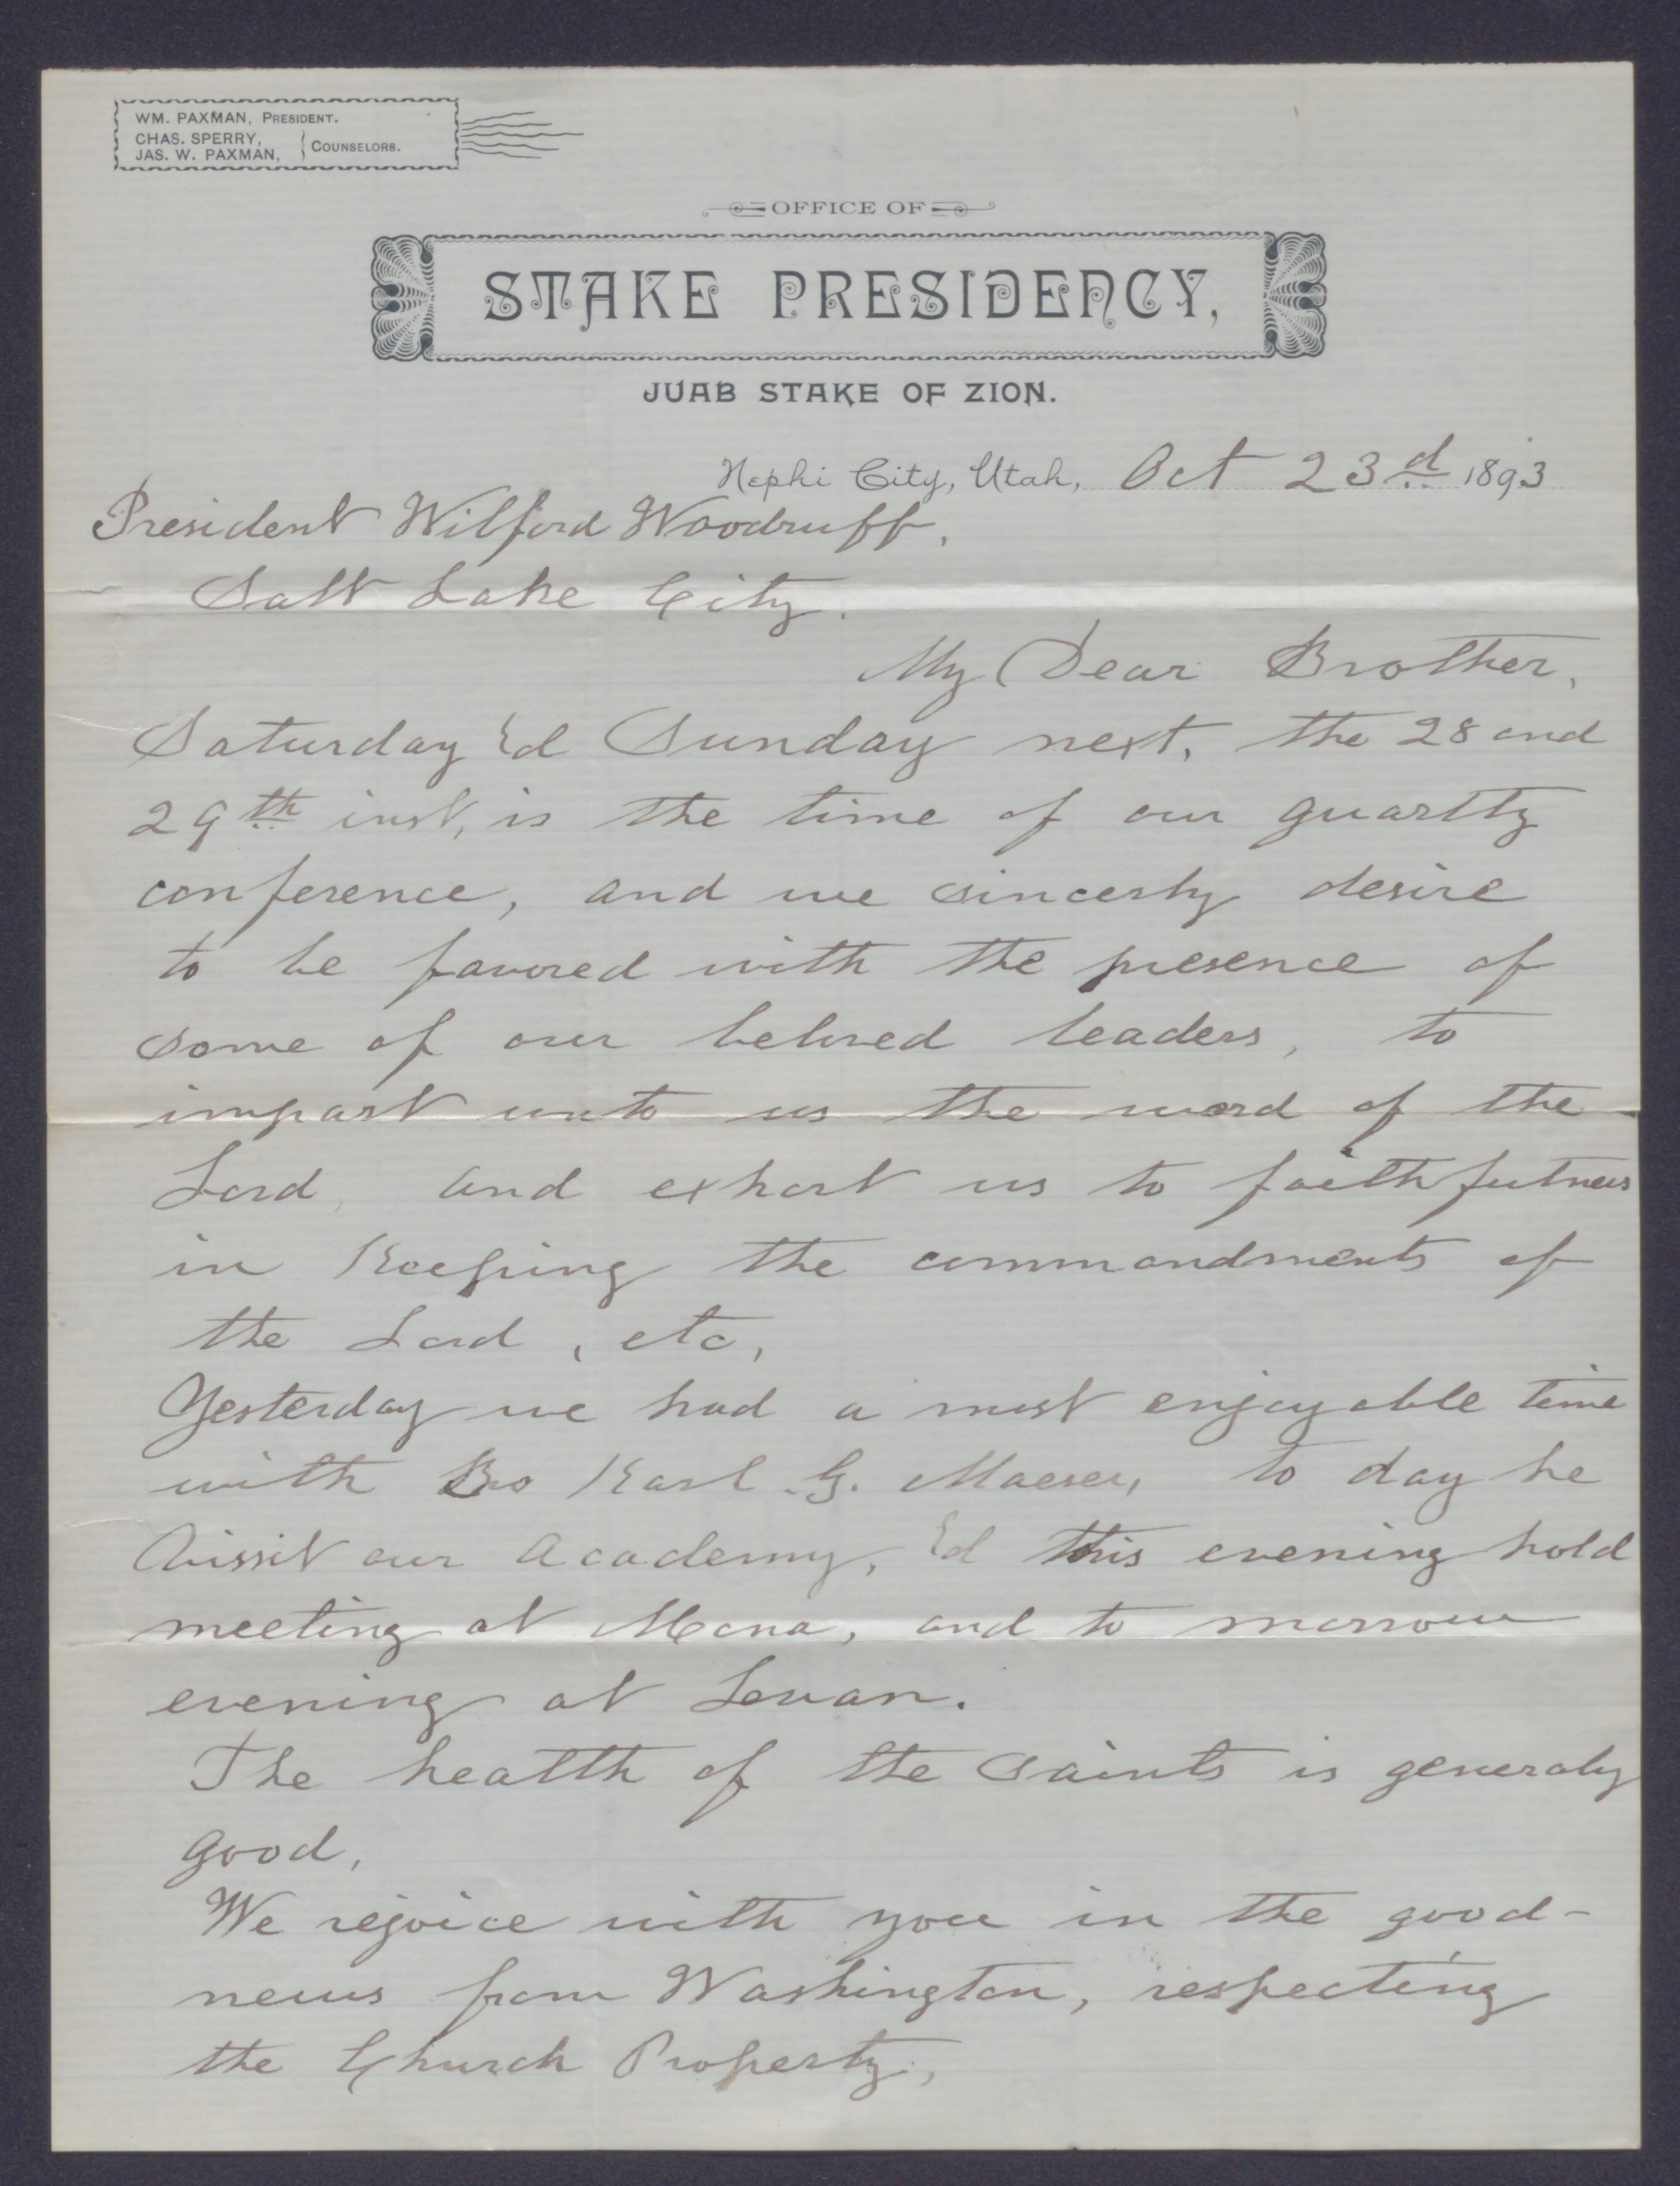 WM. PAXMAN, PRESIDENT.
CHAS. SPERRY,
JAS. W. PAXMAN,
COUNSELORS.
OFFICE OF
STAKE PRESIDENCY,
JUAB STAKE OF ZION.
Nephi City, Utah, Oct 23d 1893
President Wilford Woodruff,
Salt Lake City.
My Dear Brother,
Saturday &d Sunday next, the 28 and
29th inst, is the time of our quartly
conference, and we sincerly desire
to be favored with the presence of
some of our beloved leaders, to
impart unto us the word of the
Lord, and exhort us to faithfulness
in Keeping the commandments of
the Lord, etc,
Yesterday we had a most enjoyable time
with Bro Karl G. Maeser, to day he
vissit our Academy, &d this evening hold
meeting at Mona, and to morrow
evening at Levan.
The health of the saints is generaly
good,
We rejoice with you in the good-
news from Washington, respecting
the Church Property,